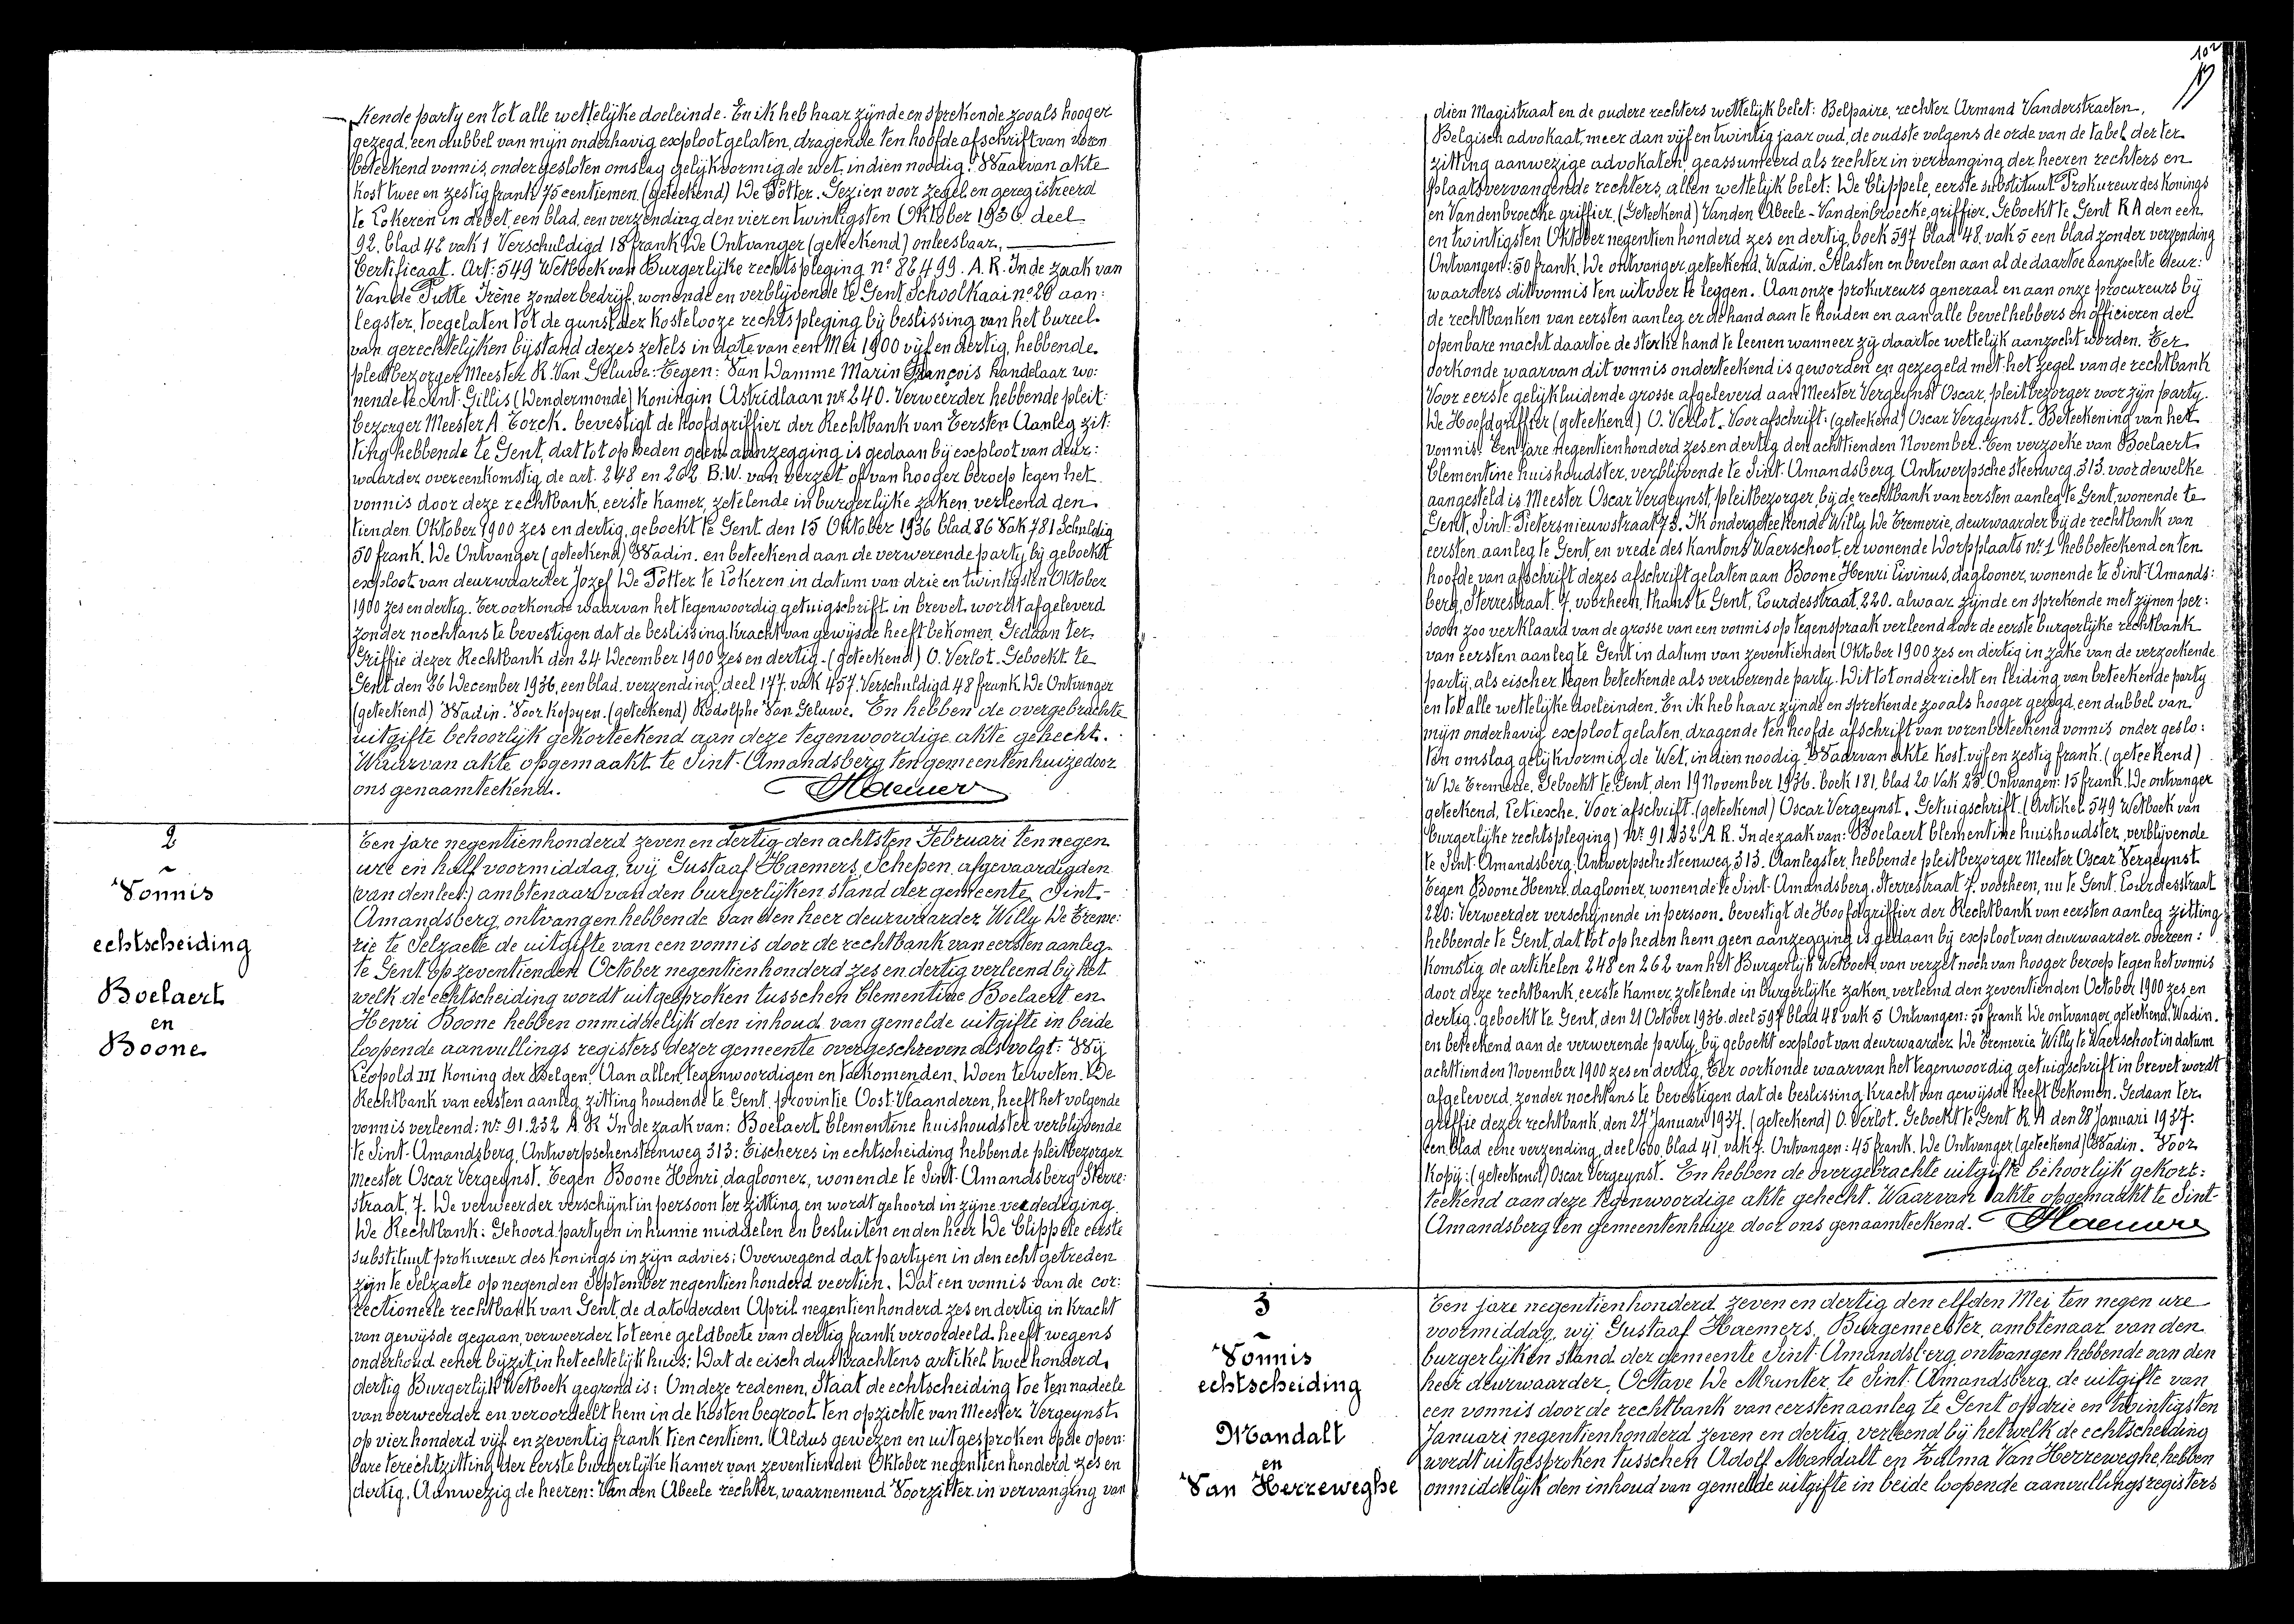 kende party en tot alle wettelijke doeleinde. En ik heb haar zijnde en sprekende zooals hooger
gezegd, een dubbel van mijn onderhavig exploot gelaten, dragende ten hoofde afschrift van voren
beteekend vonnis, onder gesloten omslag gelijkvormig de wet, indien noodig. Waarvan akte
kost twee en zestig frank 75 centiemen. (geteekend) De Potter. Gezien voor zegel en geregistreerd
te Lokeren in debet, een blad, een verzending den vier en twintigsten Oktober 1936 deel
92. blad 42 vak 1 Verschuldigd 18 frank De Ontvanger (geteekend) onleesbaar.
Certificaat. Art: 549 Wetboek van Burgerlijke rechtspleging nº 88499. A.R. In de zaak van
Van de Putte Irène zonder bedrijf, wonende en verblijvende te Gent Schoolkaai nº 20 aan:
legster, toegelaten tot de gunst der kostelooze rechtspleging bij beslissing van het bureel
van gerechtelijken bijstand dezes zetels in date van een Mei 1900 vijf en dertig, hebbende
pleitbezorger Meester R. Van Geluwe. Tegen: Van Damme Marin François handelaar wo:
nende te Sint Gillis (Dendermonde) Koningin Astridlaan nr 240. Verweerder hebbende pleit:
bezorger Meester A Torck. bevestigt de hoofdgriffier der Rechtbank van Eersten Aanleg zit:
ting hebbende te Gent, dat tot op heden geen aanzegging is gedaan bij exploot van deur:
waarder overeenkomstig de art. 248 en 262 B.W. van verzet of van hooger beroep tegen het
vonnis door deze rechtbank, eerste kamer, zetelende in burgerlijke zaken verleend den
tienden Oktober 1900 zes en dertig, geboekt te Gent den 15 Oktober 1936 blad 86 Vak 781 Schuldig
50 frank. De Ontvanger (geteekend) Wadin. en beteekend aan de verwerende party bij geboekt
exploot van deurwaarder Jozef De Potter te Lokeren in datum van drie en twintigsten Oktober
1900 zes en dertig. Ter oorkonde waarvan het tegenwoordig getuigschrift in brevet wordt afgeleverd
zonder nochtans te bevestigen dat de beslissing kracht van gewijsde heeft bekomen. Gedaan ter
Griffie dezer Rechtbank den 24 December 1900 zes en dertig. (geteekend) O. Verlot. Geboekt te
Gent den 26 December 1936, een blad. verzending, deel 177. vak 457. Verschuldigd 48 frank. De Ontvanger
(geteekend) Wadin. Voor kopyen. (geteekend) Rodolphe Van Geluwe. En hebben de overgebrachte
uitgifte behoorlijk gekorteekend aan deze tegenwoordige akte gehecht.
Waarvan akte opgemaakt te Sint-Amandsberg ten gemeentenhuize door
ons genaamteekend. Haemers
2
Vonnis
echtscheiding
Boelaert
en
Boone
Ten jare negentienhonderd zeven en dertig den achtsten Februari ten negen
ure en half voormiddag, wij Gustaaf Haemers, Schepen, afgevaardigden
ambtenaar van den burgerlijken stand der gemeente Sint-
Amandsberg, ontvangen hebbende van den heer deurwaarder Willy De Creme:
rie te Selzaete de uitgifte van een vonnis door de rechtbank van eersten aanleg
te Gent op zeventienden October negentienhonderd zes en dertig verleend bij het
welk de echtscheiding wordt uitgesproken tusschen Clementine Boelaert en
Henri Boone hebben onmiddelijk den inhoud van gemelde uitgifte in beide
loopende aanvullings registers dezer gemeente overgeschreven als volgt: Wij
Leopold III Koning der Belgen, Aan allen, tegenwoordigen en toekomenden, Doen te weten. De
Rechtbank van eersten aanleg, zitting houdende te Gent, provintie Oost-Vlaanderen, heeft het volgende
vonnis verleend: nr 91.232 A R In de zaak van: Boelaert Clementine huishoudster verblijvende
te Sint-Amandsberg, Antwerpschensteenweg 313: Eischeres in echtscheiding hebbende pleitbezorger
Meester Oscar Vergeynst. Tegen Boone Henri, daglooner, wonende te Sint-Amandsberg Sterre:
straat, 7. De verweerder verschijnt in persoon ter zitting en wordt gehoord in zijne verdediging.
De Rechtbank: Gehoord partyen in hunne middelen en besluiten en den heer De Clippele eerste
substituut prokureur des Konings in zijn advies; Overwegend dat partyen in den echt getreden
zijn te Selzaete op negenden September negentien honderd veertien. Dat een vonnis van de cor:
rectioneele rechtbank van Gent, de dato derden April negentienhonderd zes en dertig in kracht
van gewijsde gegaan, verweerder tot eene geldboete van dertig frank veroordeeld heeft wegens
onderhoud eener bijzit in het echtelijk huis; Dat de eisch dus krachtens artikel twee honderd
dertig Burgerlijk Wetboek gegrond is; Om deze redenen, Staat de echtscheiding toe ten nadeele
van verweerder en veroordeelt hem in de kosten begroot ten opzichte van Meester Vergeynst
op vier honderd vijf en zeventig frank tien centiem. Aldus gewezen en uitgesproken op de open:
bare terechtzitting der eerste burgerlijke kamer van zeventienden Oktober negentien honderd zes en
dertig. Aanwezig de heeren: Van den Abeele rechter, waarnemend Voorzitter in vervanging van
102
dien Magistraat en de oudere rechters wettelijk belet: Belpaire, rechter Armand Vanderstraeten,
Belgisch advokaat, meer dan vijf en twintig jaar oud, de oudste volgens de orde van de tabel der ter
zitting aanwezige advokaten, geassumeerd als rechter in vervanging der heeren rechters en
plaatsvervangende rechters, allen wettelijk belet: De Clippele, eerste substituut Prokureur des Konings
en Vandenbroecke griffier. (Geteekend) Vanden Abeele - Vandenbroecke, griffier. Geboekt te Gent R A den een
en twintigsten Oktober negentien honderd zes en dertig, boek 597 blad 48. vak 5 een blad zonder verzending
Ontvangen: 50 frank. De ontvanger, geteekend, Wadin. Gelasten en bevelen aan al de daartoe aanzochte deur:
waarders dit vonnis ten uitvoer te leggen. Aan onze prokureurs generaal en aan onze procureurs bij
de rechtbanken van eersten aanleg er de hand aan te houden en aan alle bevelhebbers en officieren der
openbare macht daartoe de sterke hand te leenen wanneer zij daartoe wettelijk aanzocht worden. Ter
oorkonde waarvan dit vonnis onderteekend is geworden en gezegeld met het zegel van de rechtbank
Voor eerste gelijkluidende grosse afgeleverd aan Meester Vergeynst Oscar, pleitbezorger voor zijn party.
De Hoofdgriffier (geteekend) O. Verlot. Voor afschrift: (geteekend) Oscar Vergeynst. Beteekening van het
vonnis. Ten jare negentienhonderd zes en dertig den achttienden November. Ten verzoeke van Boelaert
Clementine huishoudster, verblijvende te Sint-Amandsberg Antwerpsche steenweg, 313. voor dewelke
aangesteld is Meester Oscar Vergeynst, pleitbezorger bij de rechtbank van eersten aanleg te Gent, wonende te
Gent, Sint-Pietersnieuwstraat 73. Ik ondergeteekende Willy De Cremerie, deurwaarder bij de rechtbank van
eersten aanleg te Gent, en vrede des kantons Waerschoot, er wonende Dorpplaats nr. 1 heb beteekend en ten
hoofde van afschrift dezes afschrift gelaten aan Boone Henri Livinus, daglooner, wonende te Sint-Amands:
berg, Sterrestraat. 7. voorheen, thans te Gent, Lourdesstraat, 220. alwaar zijnde en sprekende met zijnen per:
soon zoo verklaard van de grosse van een vonnis op tegenspraak verleend door de eerste burgerlijke rechtbank
van eersten aanleg te Gent in datum van zeventienden Oktober 1900 zes en dertig in zake van de verzoekende
party, als eischer tegen beteekende als verwerende party. Dit tot onderricht en leiding van beteekende party
en tot alle wettelijke doeleinden. En ik heb haar zijnde en sprekende zooals hooger gezegd, een dubbel van
mijn onderhavig exploot gelaten, dragende ten hoofde afschrift van vorenbeteekend vonnis onder geslo:
ten omslag gelijkvormig de Wet, indien noodig. Waarvan akte kost vijf en zestig frank. (geteekend)
W De Cremerie. Geboekt te Gent, den 19 November 1936. boek 181, blad 20 Vak 23. Ontvangen: 15 frank. De ontvanger
geteekend, Letiesche. Voor afschrift. (geteekend) Oscar Vergeynst. Getuigschrift. (Artikel 549 Wetboek van
burgerlijke rechtspleging) nr. 91232 A.R. In de zaak van: Boelaert Clementine huishoudster, verblijvende
te Sint-Amandsberg, Antwerpschesteenweg, 313. Aanlegster, hebbende pleitbezorger Meester Oscar Vergeynst
Tegen Boone Henri, daglooner, wonende te Sint-Amandsberg, Sterrestraat 7. voorheen, nu te Gent. Lourdesstraat
220: Verweerder verschijnende in persoon. bevestigt de Hoofdgriffier der Rechtbank van eersten aanleg zitting
hebbende te Gent, dat tot op heden hem geen aanzegging is gedaan bij exploot van deurwaarder overeen:
komstig de artikelen 248 en 262 van het Burgerlijk Wetboek, van verzet noch van hooger beroep tegen het vonnis
door deze rechtbank, eerste kamer, zetelende in burgerlijke zaken, verleend den zeventienden October 1900 zes en
dertig. geboekt te Gent, den 21 October 1936. deel 597 blad 48 vak 5 Ontvangen: 50 frank De ontvanger, geteekend, Wadin.
en beteekend aan de verwerende party, bij geboekt exploot van deurwaarder De Cremerie Willy te Waerschoot in datum
achttienden November 1900 zes en dertig. Ter oorkonde waarvan het tegenwoordig getuigschrift in brevet wordt
afgeleverd, zonder nochtans te bevestigen dat de beslissing kracht van gewijsde heeft bekomen. Gedaan ter
griffie dezer rechtbank, den 27 Januari 1937. (geteekend) O. Verlot. Geboekt te Gent R. A den 28 Januari 1937.
een blad eene verzending, deel 600, blad 41 vak 7. Ontvangen: 45 frank. De Ontvanger (geteekend) Wadin. Voor
Kopij: (geteekend) Oscar Vergeynst. En hebben de overgebrachte uitgifte behoorlijk gekort:
teekend aan deze tegenwoordige akte gehecht. Waarvan akte opgemaakt te Sint-
Amandsberg ten gemeentenhuize door ons genaamteekend. Haemers
3
Vonnis
echtscheiding
Mandalt
en
Van Herreweghe
Ten jare negentienhonderd zeven en dertig den elfden Mei ten negen ure
voormiddag, wij Gustaaf Haemers, Burgemeester, ambtenaar van den
burgerlijken stand der gemeente Sint-Amandsberg, ontvangen hebbende van den
heer deurwaarder, Octave De Munter te Sint-Amandsberg, de uitgifte van
een vonnis door de rechtbank van eersten aanleg te Gent op drie en twintigsten
Januari negentienhonderd zeven en dertig, verleend bij hetwelk de echtscheiding
wordt uitgesproken tusschen Adolf Mandalt en Zulma Van Herreweghe, hebben
onmiddelijk den inhoud van gemelde uitgifte in beide loopende aanvullingsregisters